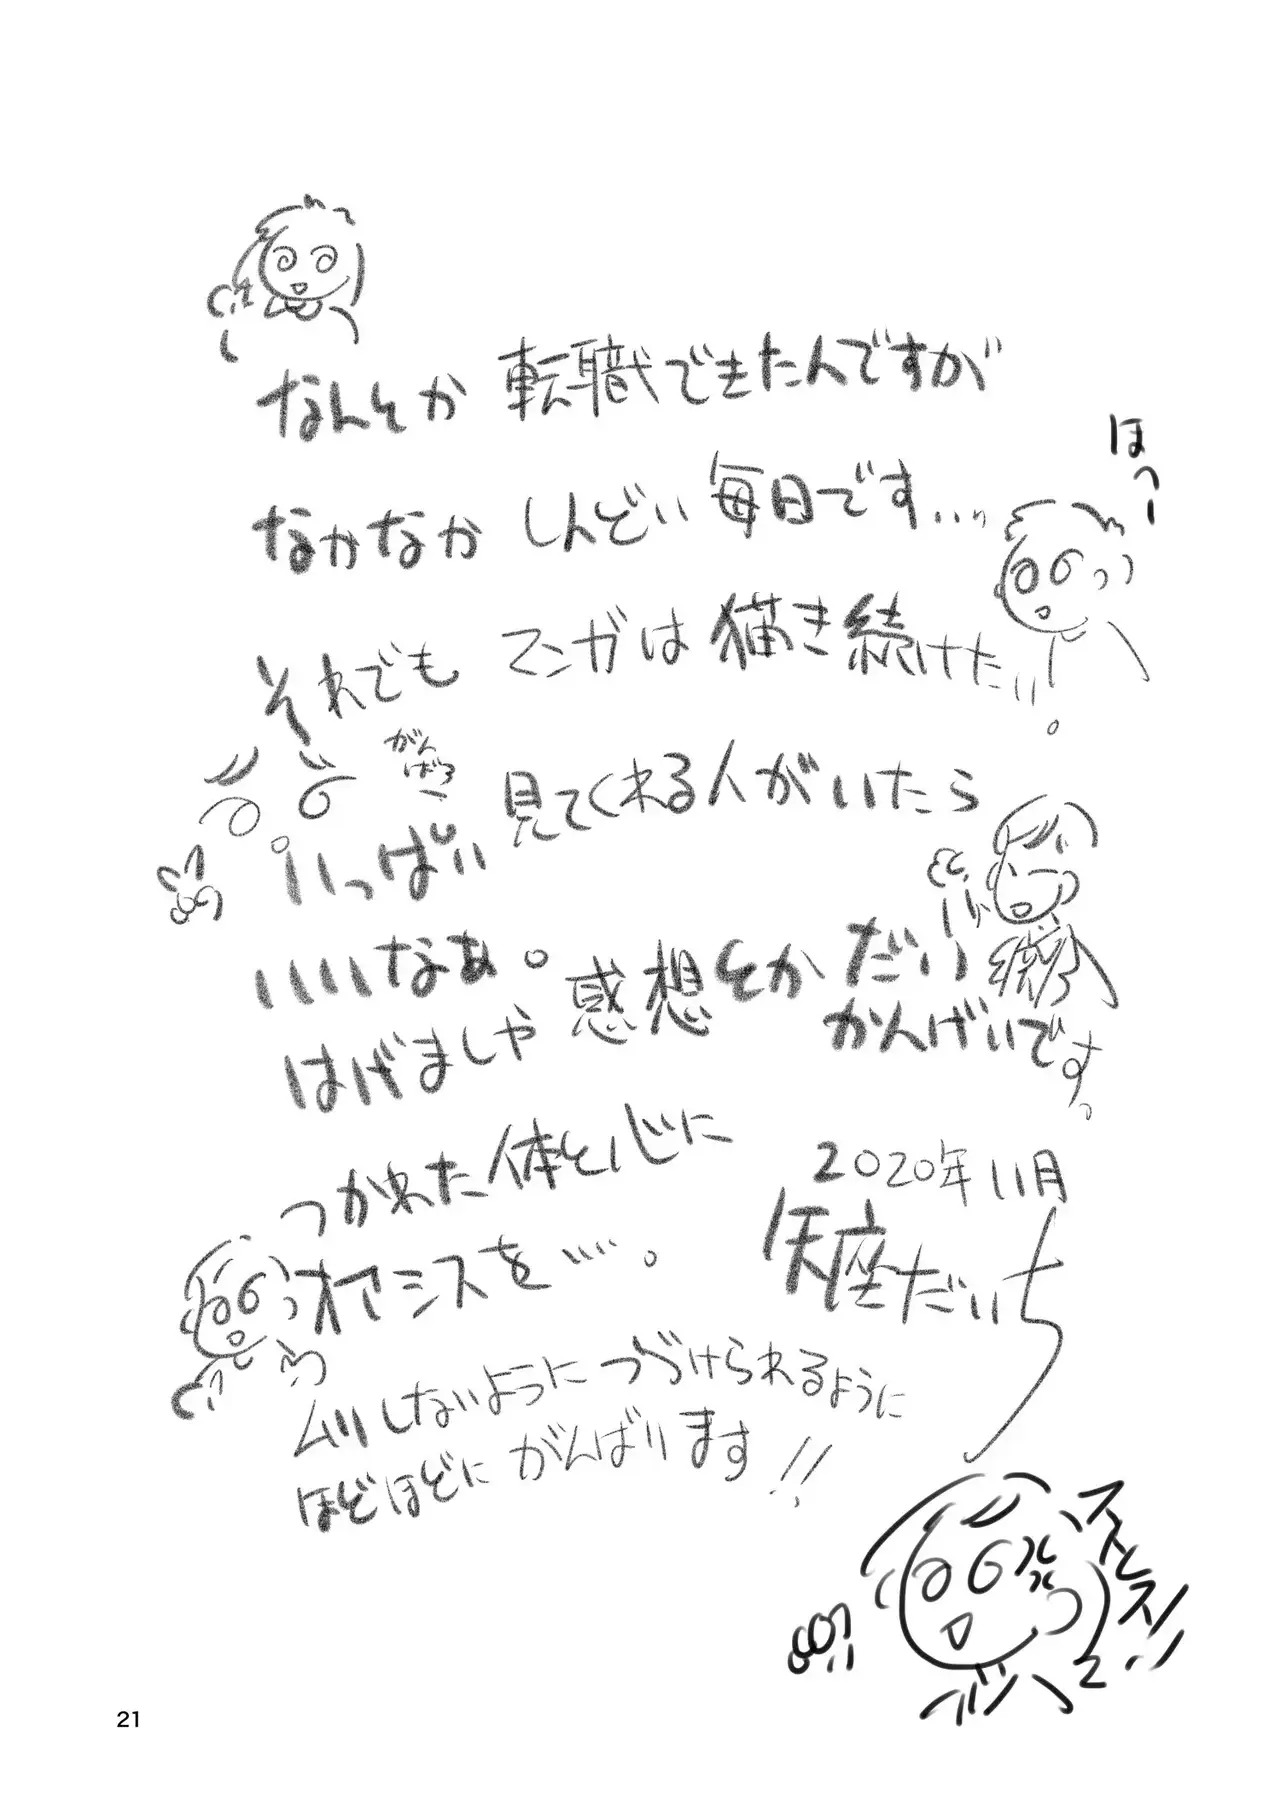 なんとか転職できたんですが
なかなかしんどい毎日です...
ほっー
それでもマンガは描き続けたい。
がん
ばろー
いっぱい見てくれる人がいたら
いいなぁ。感想とかだい
かんげいです。
はげましや
つかれた体と心に
オアシスを…。
2020年11月
矢座だいち
ムリしないようにつづけられるように
ほどほどにがんばります!!
21